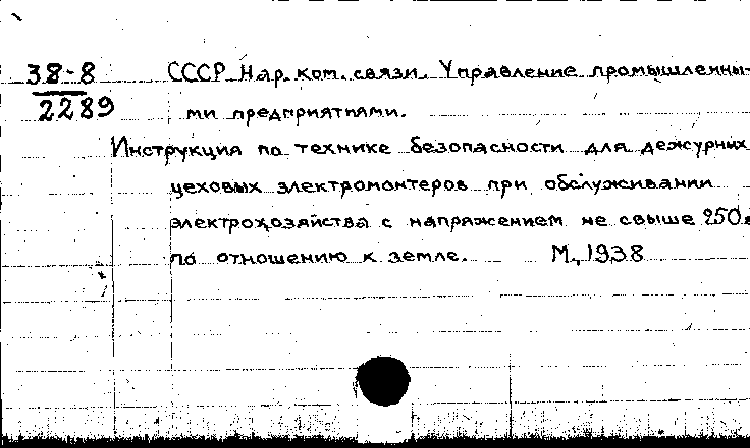 38-8
2289
СССР. Нар. ком. связи. Управление промышленны-
ми предприятиями.
Инструкция по технике безопасности для дежурных
цеховых электромонтеров при обслуживании
электрохозяйства с напряжением не свыше 250в
по отношению к земле. М., 1938